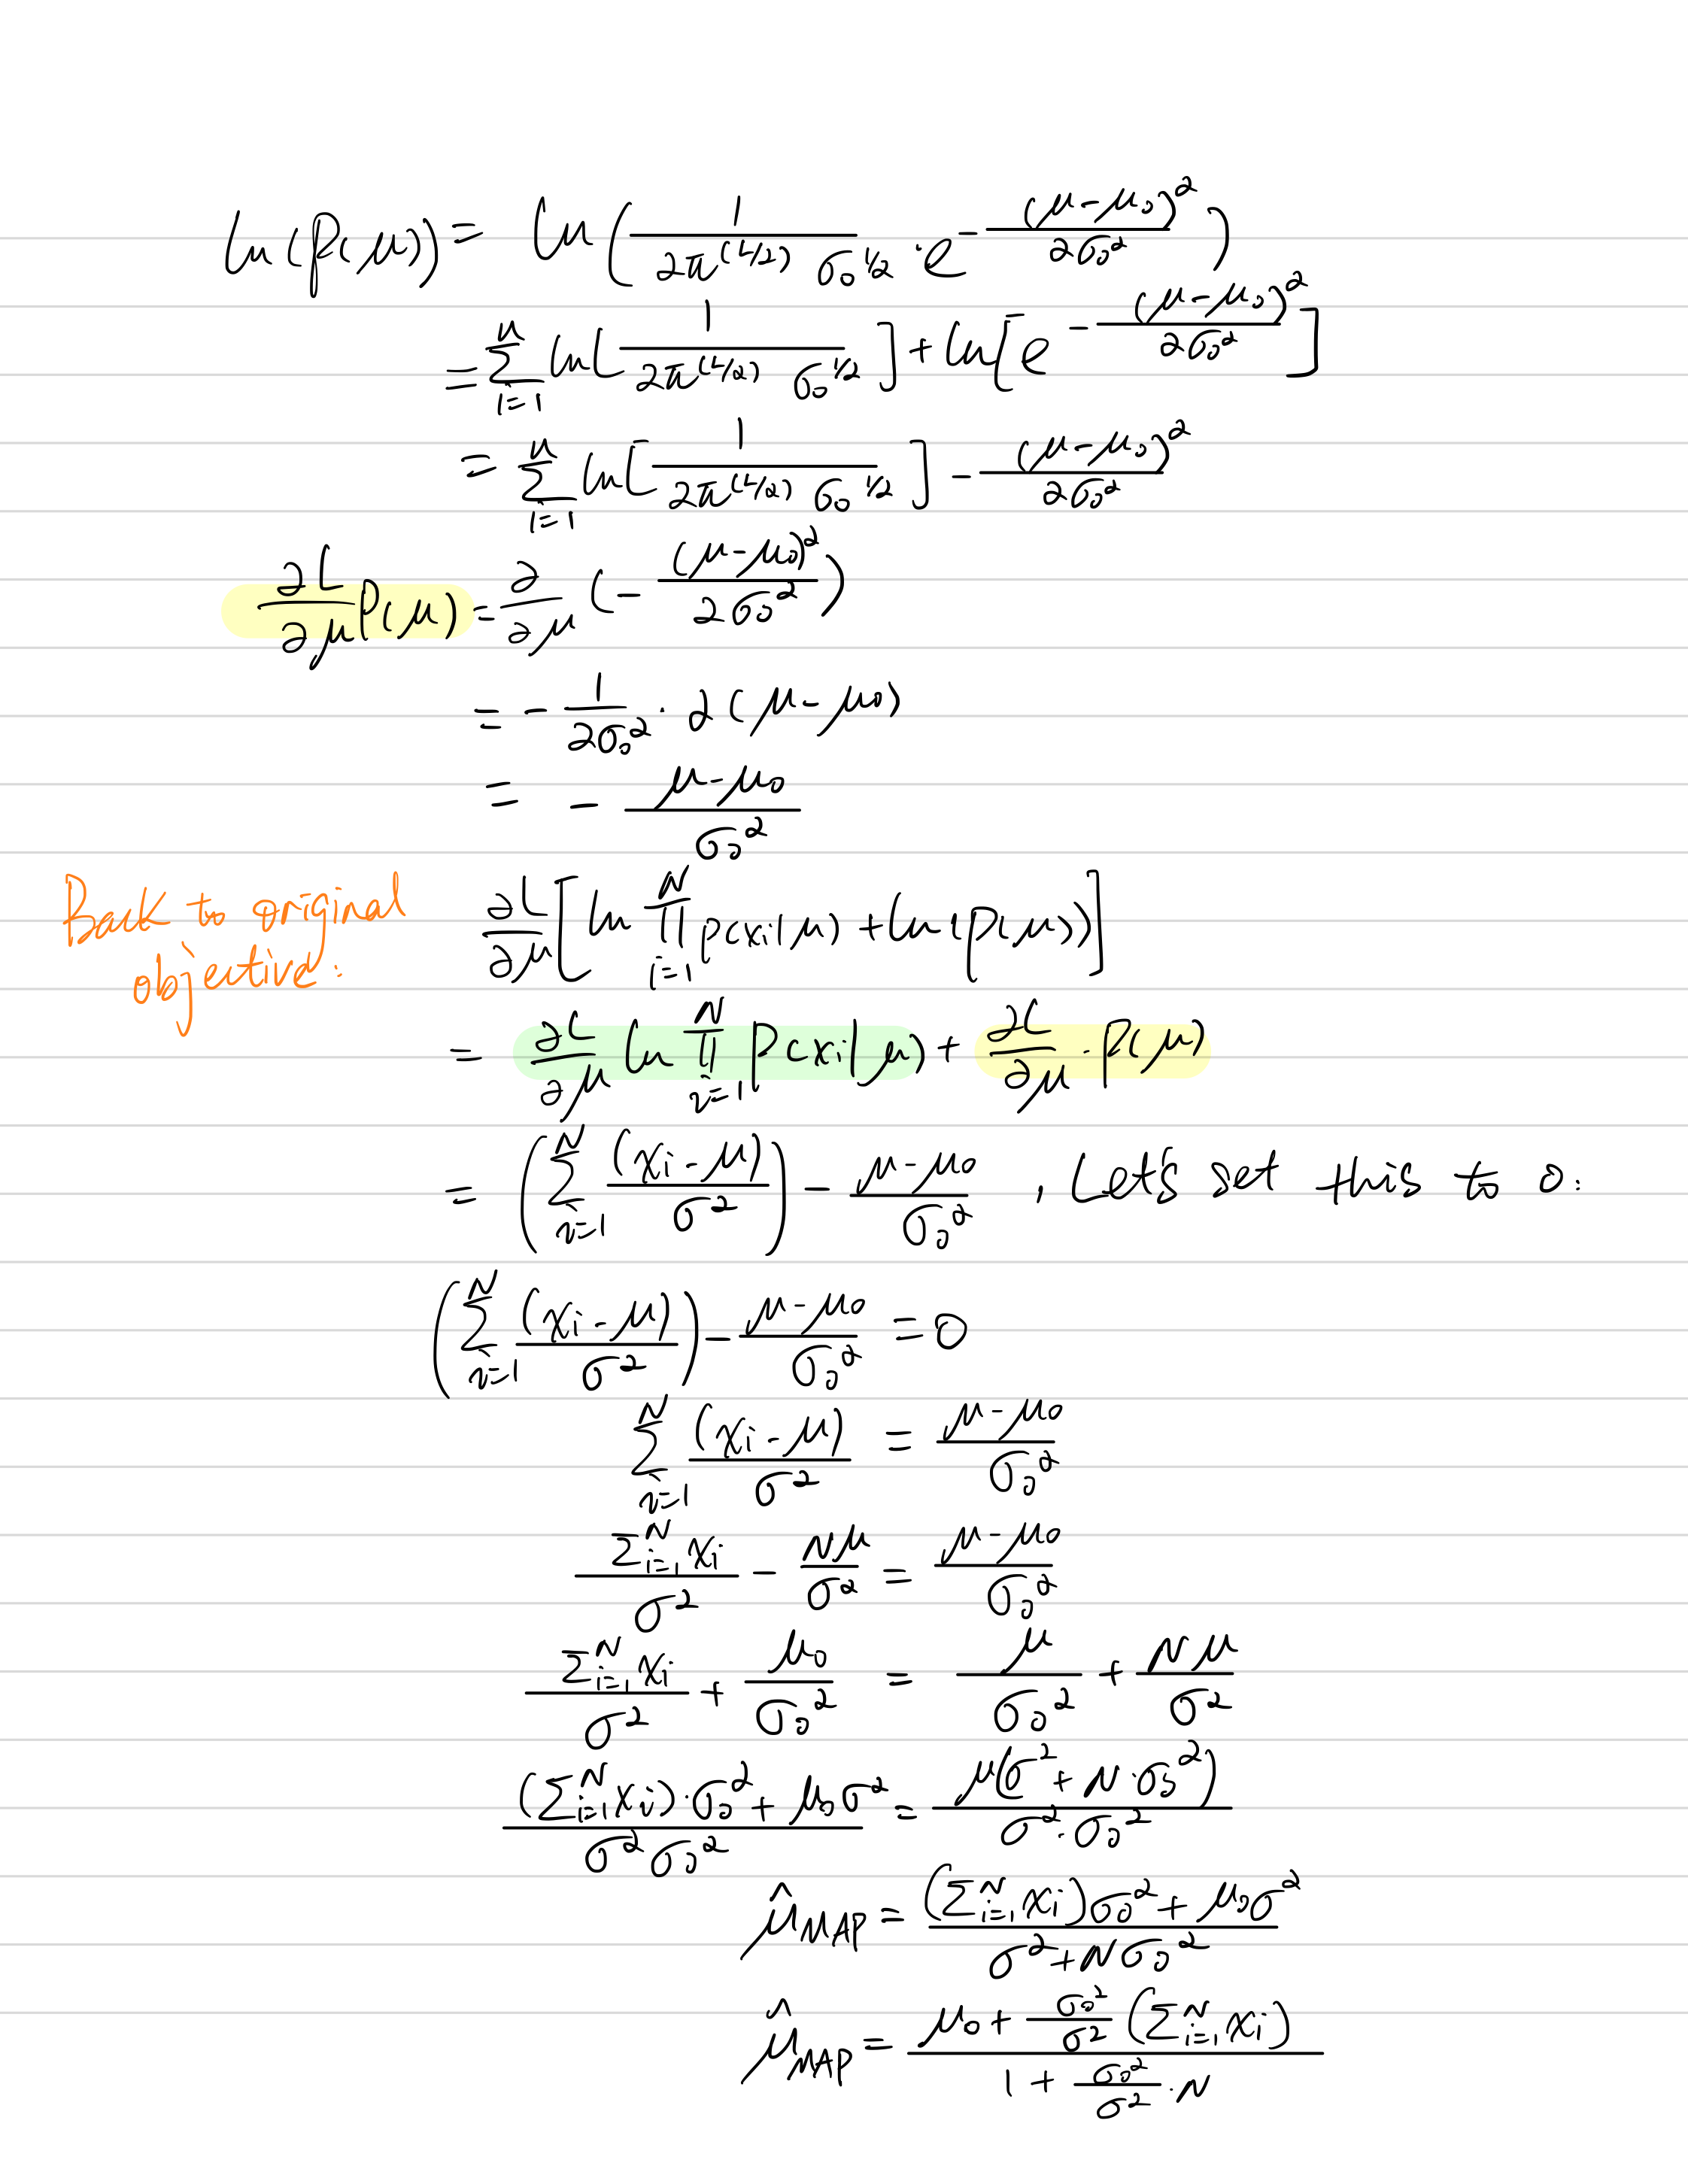 ln(p(μ)) = ln(1/(2π^(L/2) σ₀^1/2) · e^-(μ-μ₀)²/2σ₀²)
= Σ_{i=1}^{n} ln[1/(2π^(L/2) σ₀^1/2)] + ln[e^-(μ-μ₀)²/2σ₀²]
= Σ_{i=1}^{n} ln[1/(2π^(L/2) σ₀^1/2)] - (μ-μ₀)²/2σ₀²
∂L/∂μ P(μ) = ∂/∂μ (-(μ-μ₀)²/2σ₀²)
= -1/2σ₀² · 2(μ-μ₀)
= - (μ-μ₀)/σ₀²
Back to original
objective:
∂L/∂μ [ln ∏_{i=1}^{N} p(xi|μ) + ln(p(μ))]
= ∂L/∂μ ln ∏_{i=1}^{N} P(xi|μ) + ∂L/∂μ · P(μ)
= (Σ_{i=1}^{N} (xi-μ)/σ²) - (μ-μ₀)/σ₀² , Let's set this to 0.
(Σ_{i=1}^{N} (xi-μ)/σ²) - (μ-μ₀)/σ₀² = 0
Σ_{i=1}^{N} (xi-μ)/σ² = (μ-μ₀)/σ₀²
Σ_{i=1}^{N} xi/σ² - Nμ/σ² = (μ-μ₀)/σ₀²
Σ_{i=1}^{N} xi/σ² + μ₀/σ₀² = μ/σ₀² + Nμ/σ²
((Σ_{i=1}^{N} xi)·σ₀² + μ₀σ²)/(σ²σ₀²) = μ(σ² + N·σ₀²)/(σ²·σ₀²)
μ̂_MAP = ((Σ_{i=1}^{N} xi)σ₀² + μ₀σ²)/(σ² + Nσ₀²)
μ̂_MAP = (μ₀ + σ₀²/σ² (Σ_{i=1}^{N} xi))/(1 + σ₀²/σ² · N)